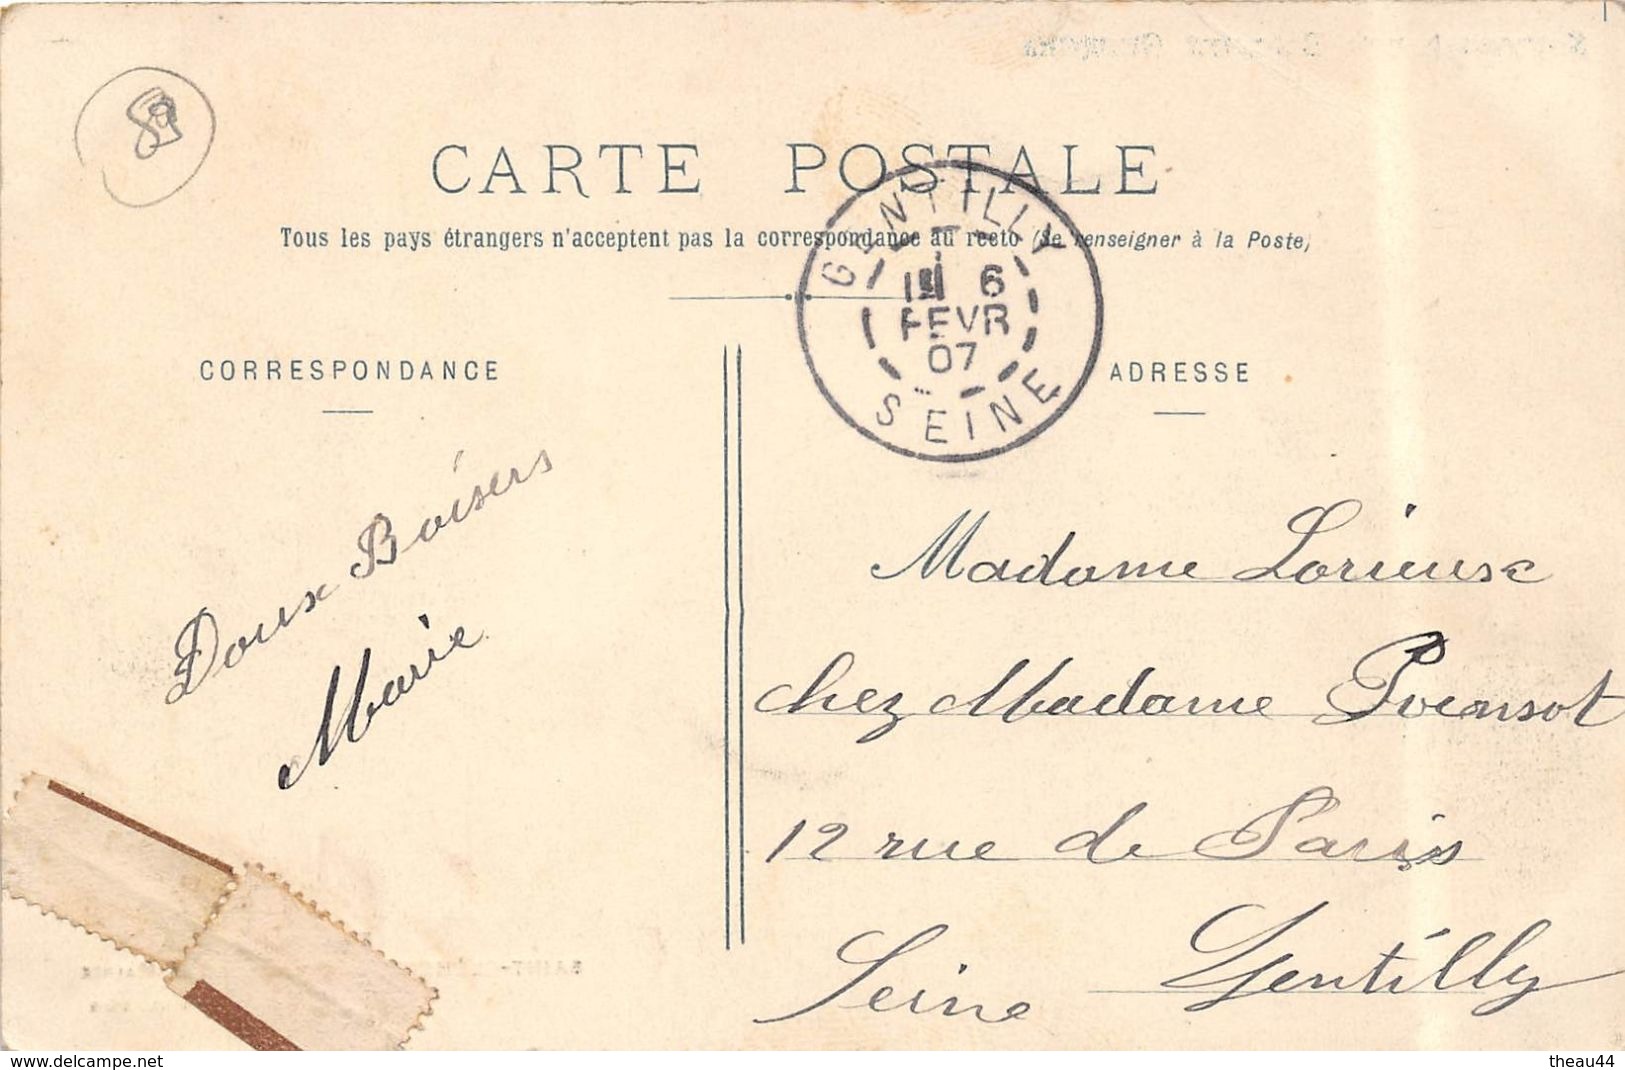 CARTE POSTALE
Tous les pays étrangers n'acceptent pas la correspondance au recto (Se renseigner à la Poste)
GENTILLY
6
FEVR
07
SEINE
CORRESPONDANCE
ADRESSE
Doux Baisers
Marie
Madame Lorieux
chez Madame Poinsot
12 rue de Paris
Gentilly
Seine
delcampe.net
theau44